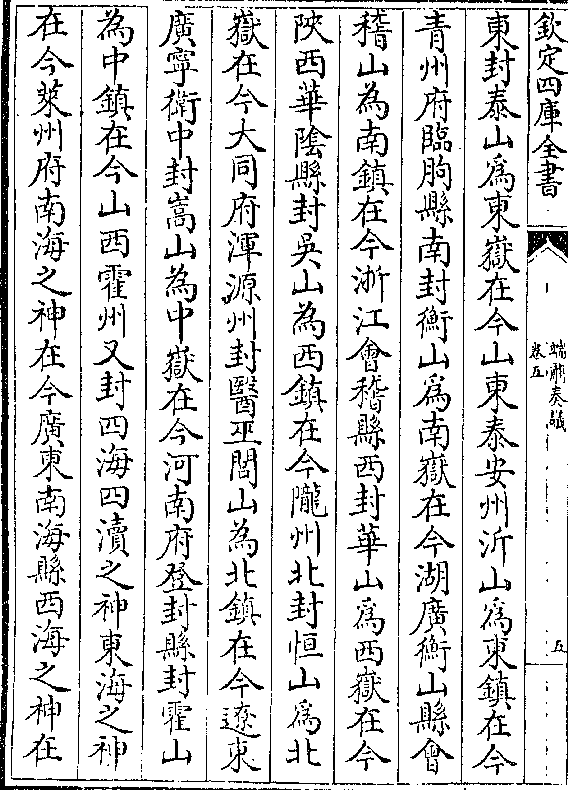 欽定四庫全書
端肅奏議
卷五
五
東封泰山爲東嶽在今山東泰安州沂山爲東鎮在今
青州府臨朐縣南封衡山爲南嶽在今湖廣衡山縣會
稽山為南鎮在今浙江會稽縣西封華山爲西嶽在今
陜西華陰縣封吳山為西鎮在今隴州北封恒山爲北
嶽在今大同府渾源州封醫巫閭山為北鎮在今遼東
廣寧衛中封嵩山為中嶽在今河南府登封縣封霍山
為中鎮在今山西霍州又封四海四瀆之神東海之神
在今萊州府南海之神在今廣東南海縣西海之神在